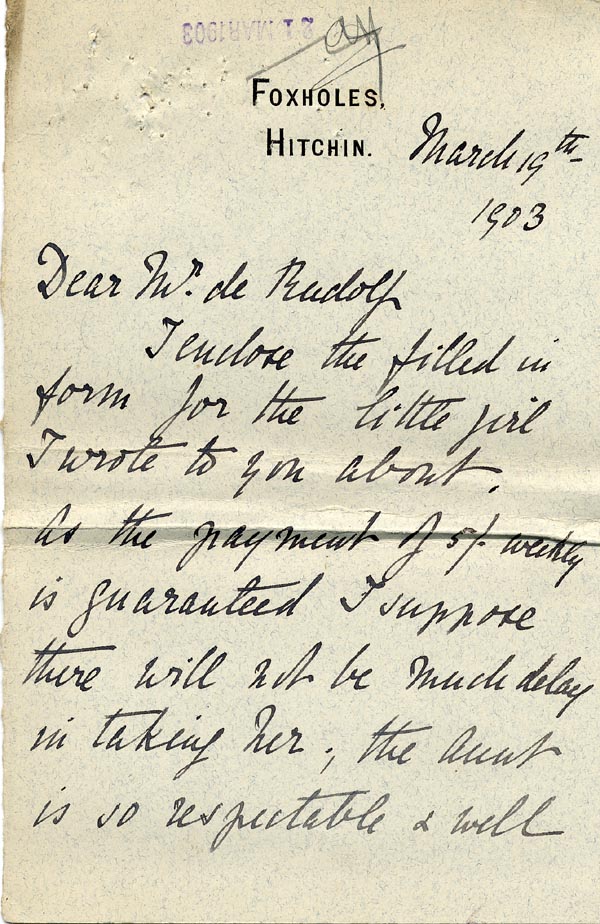 21 MAR 1903
FOXHOLES,
HITCHIN.
March 19th
1903
Dear Mr. de Rudolf
I enclose the filled in
form for the little girl
I wrote to you about.
As the payment of 5/- weekly
is guaranteed I suppose
there will not be much delay
in taking her; the Aunt
is so respectable & well